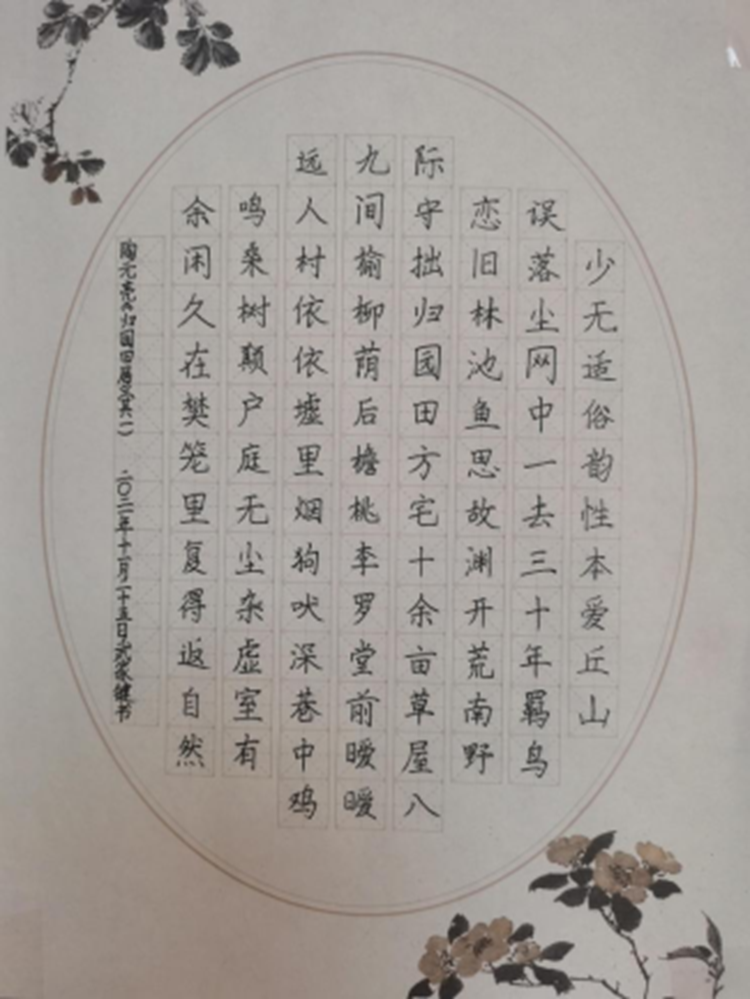 少无适俗韵性本爱丘山
误落尘网中一去三十年羁鸟
恋旧林池鱼思故渊开荒南野
际守拙归园田方宅十余亩草屋八
九间榆柳荫后檐桃李罗堂前暧暧
远人村依依墟里烟狗吠深巷中鸡
鸣桑树颠户庭无尘杂虚室有
余闲久在樊笼里复得返自然
陶元亮 归园田居 其一 二〇二一年十一月二十五日 书